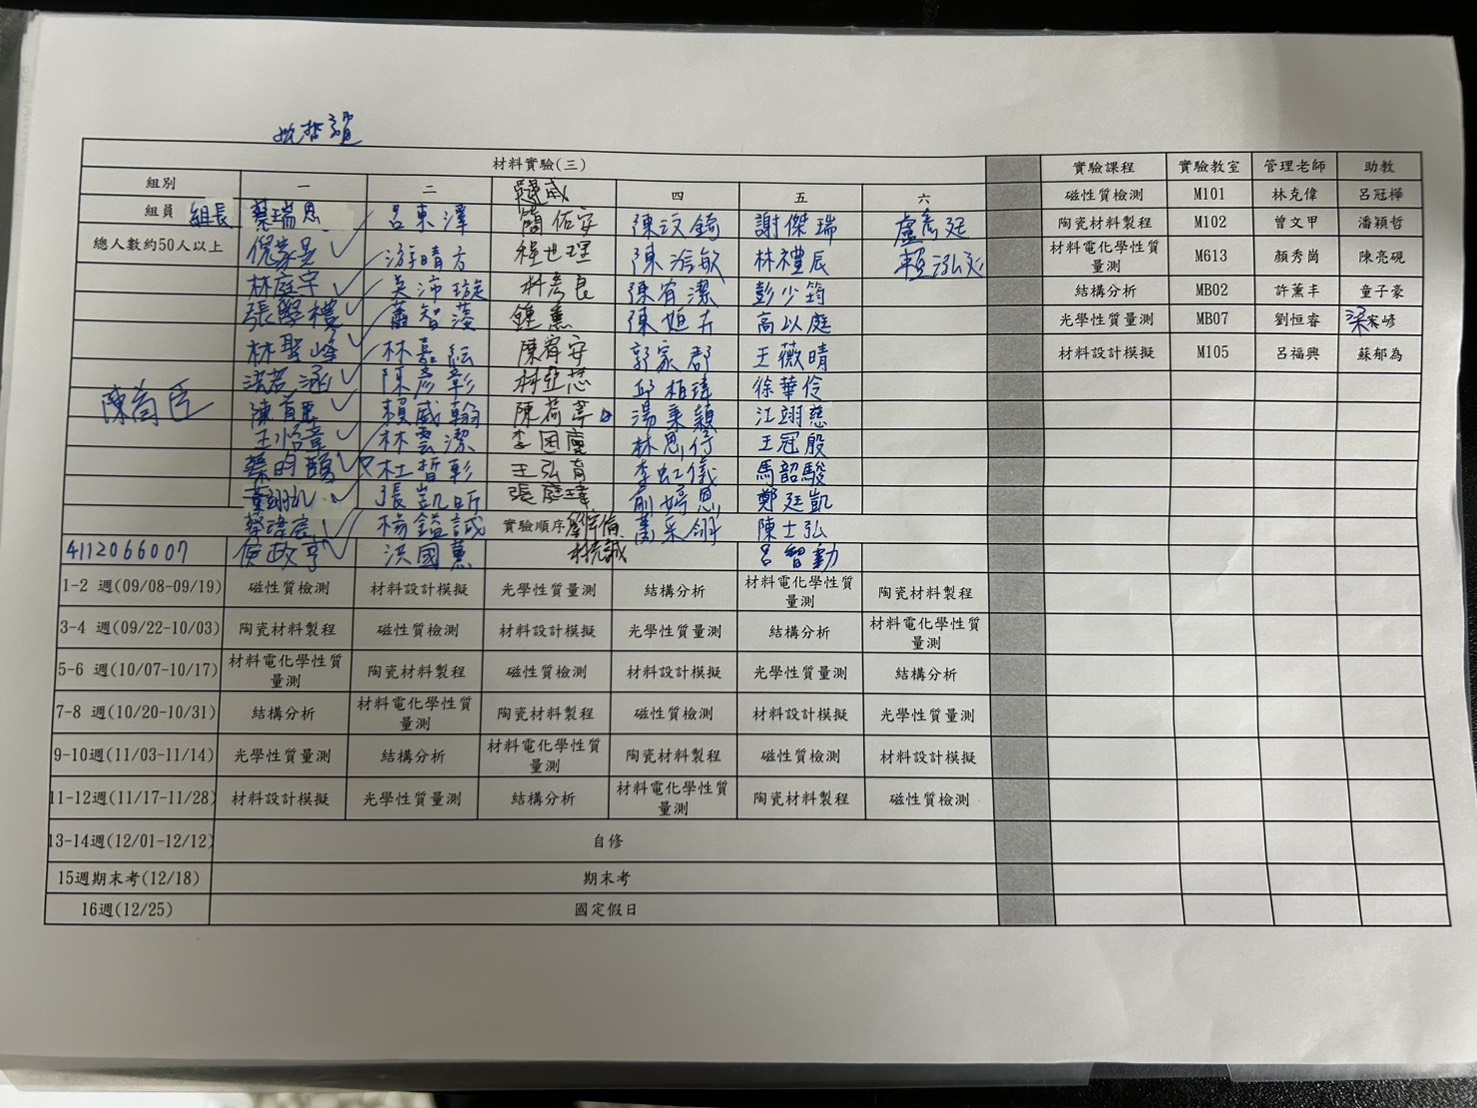 材料實驗(三) 實驗課程 實驗教室 管理老師 助教
組別 一 二 四 五 六 磁性質檢測 M101 林克偉 呂冠樺
組員 組長 蔡瑞恩 呂東澤 簡佑安 陳汶錡 謝傑瑞 盧彥廷 陶瓷材料製程 M102 曾文甲 潘穎哲
總人數約50人以上 倪家晟 游晴方 程世理 陳洽敏 林禮辰 賴泓彣 材料電化學性質量測 M613 顏秀崗 陳亮硯
林庭宇 吳沛璇 林彥良 陳宥潔 彭少筠 結構分析 MB02 許薰丰 童子豪
張學樓 蕭智蓤 鍾薰 陳姮卉 高以庭 光學性質量測 MB07 劉恒睿
林聖峰 林嘉紜 陳宥安 郭家郡 王薇晴 材料設計模擬 M105 呂福興 蘇郁為
洪若涵 陳彥彰 林亞蕊 邱柏瑋 徐華伶
陳首臣 賴威翰 陳荷葶 湯秉穎 江翊慈
林雲潔 林恩伃 王冠殷
蔡昀頤 杜哲彰 王弘育 李虹儀 馬韶駿
張凱昕 張庭瑋 俞婷恩 鄭廷凱
蔡瑋宸 楊鎰誠 實驗順序 萬采翎 陳士弘
4112066007 侯政亨 洪國薰 林亮誠 呂智勳
1-2 週(09/08-09/19) 磁性質檢測 材料設計模擬 光學性質量測 結構分析 材料電化學性質量測 陶瓷材料製程
3-4 週(09/22-10/03) 陶瓷材料製程 磁性質檢測 材料設計模擬 光學性質量測 結構分析 材料電化學性質量測
5-6 週(10/07-10/17) 材料電化學性質量測 陶瓷材料製程 磁性質檢測 材料設計模擬 光學性質量測 結構分析
7-8 週(10/20-10/31) 結構分析 材料電化學性質量測 陶瓷材料製程 磁性質檢測 材料設計模擬 光學性質量測
9-10週(11/03-11/14) 光學性質量測 結構分析 材料電化學性質量測 陶瓷材料製程 磁性質檢測 材料設計模擬
11-12週(11/17-11/28) 材料設計模擬 光學性質量測 結構分析 材料電化學性質量測 陶瓷材料製程 磁性質檢測
13-14週(12/01-12/12) 自修
15週期末考(12/18) 期末考
16週(12/25) 國定假日